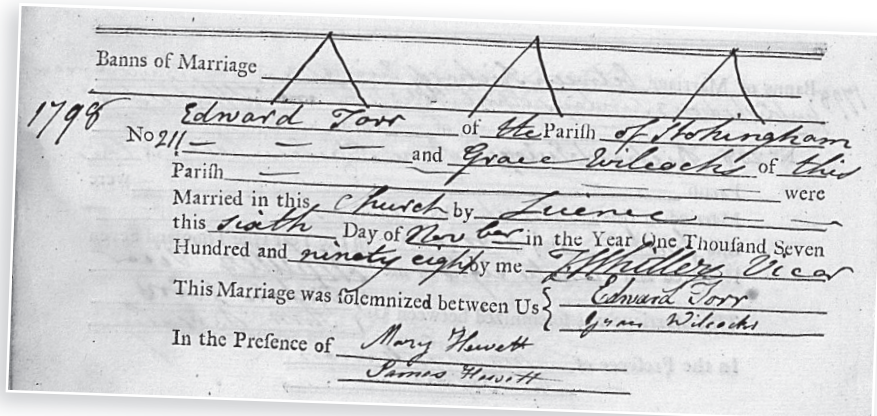 Banns of Marriage
1798
Edward Torr of the Pariſh of Hokingham
No 211 and Grace Wilcocks of this
Pariſh were
Married in this Church by Licence
this sixth Day of Novber in the Year One Thouſand Seven
Hundred and ninety eight by me Vicar
This Marriage was ſolemnized between Us Edward Torr
Wilcocks
In the Preſence of Mary Hewett
James Hewitt